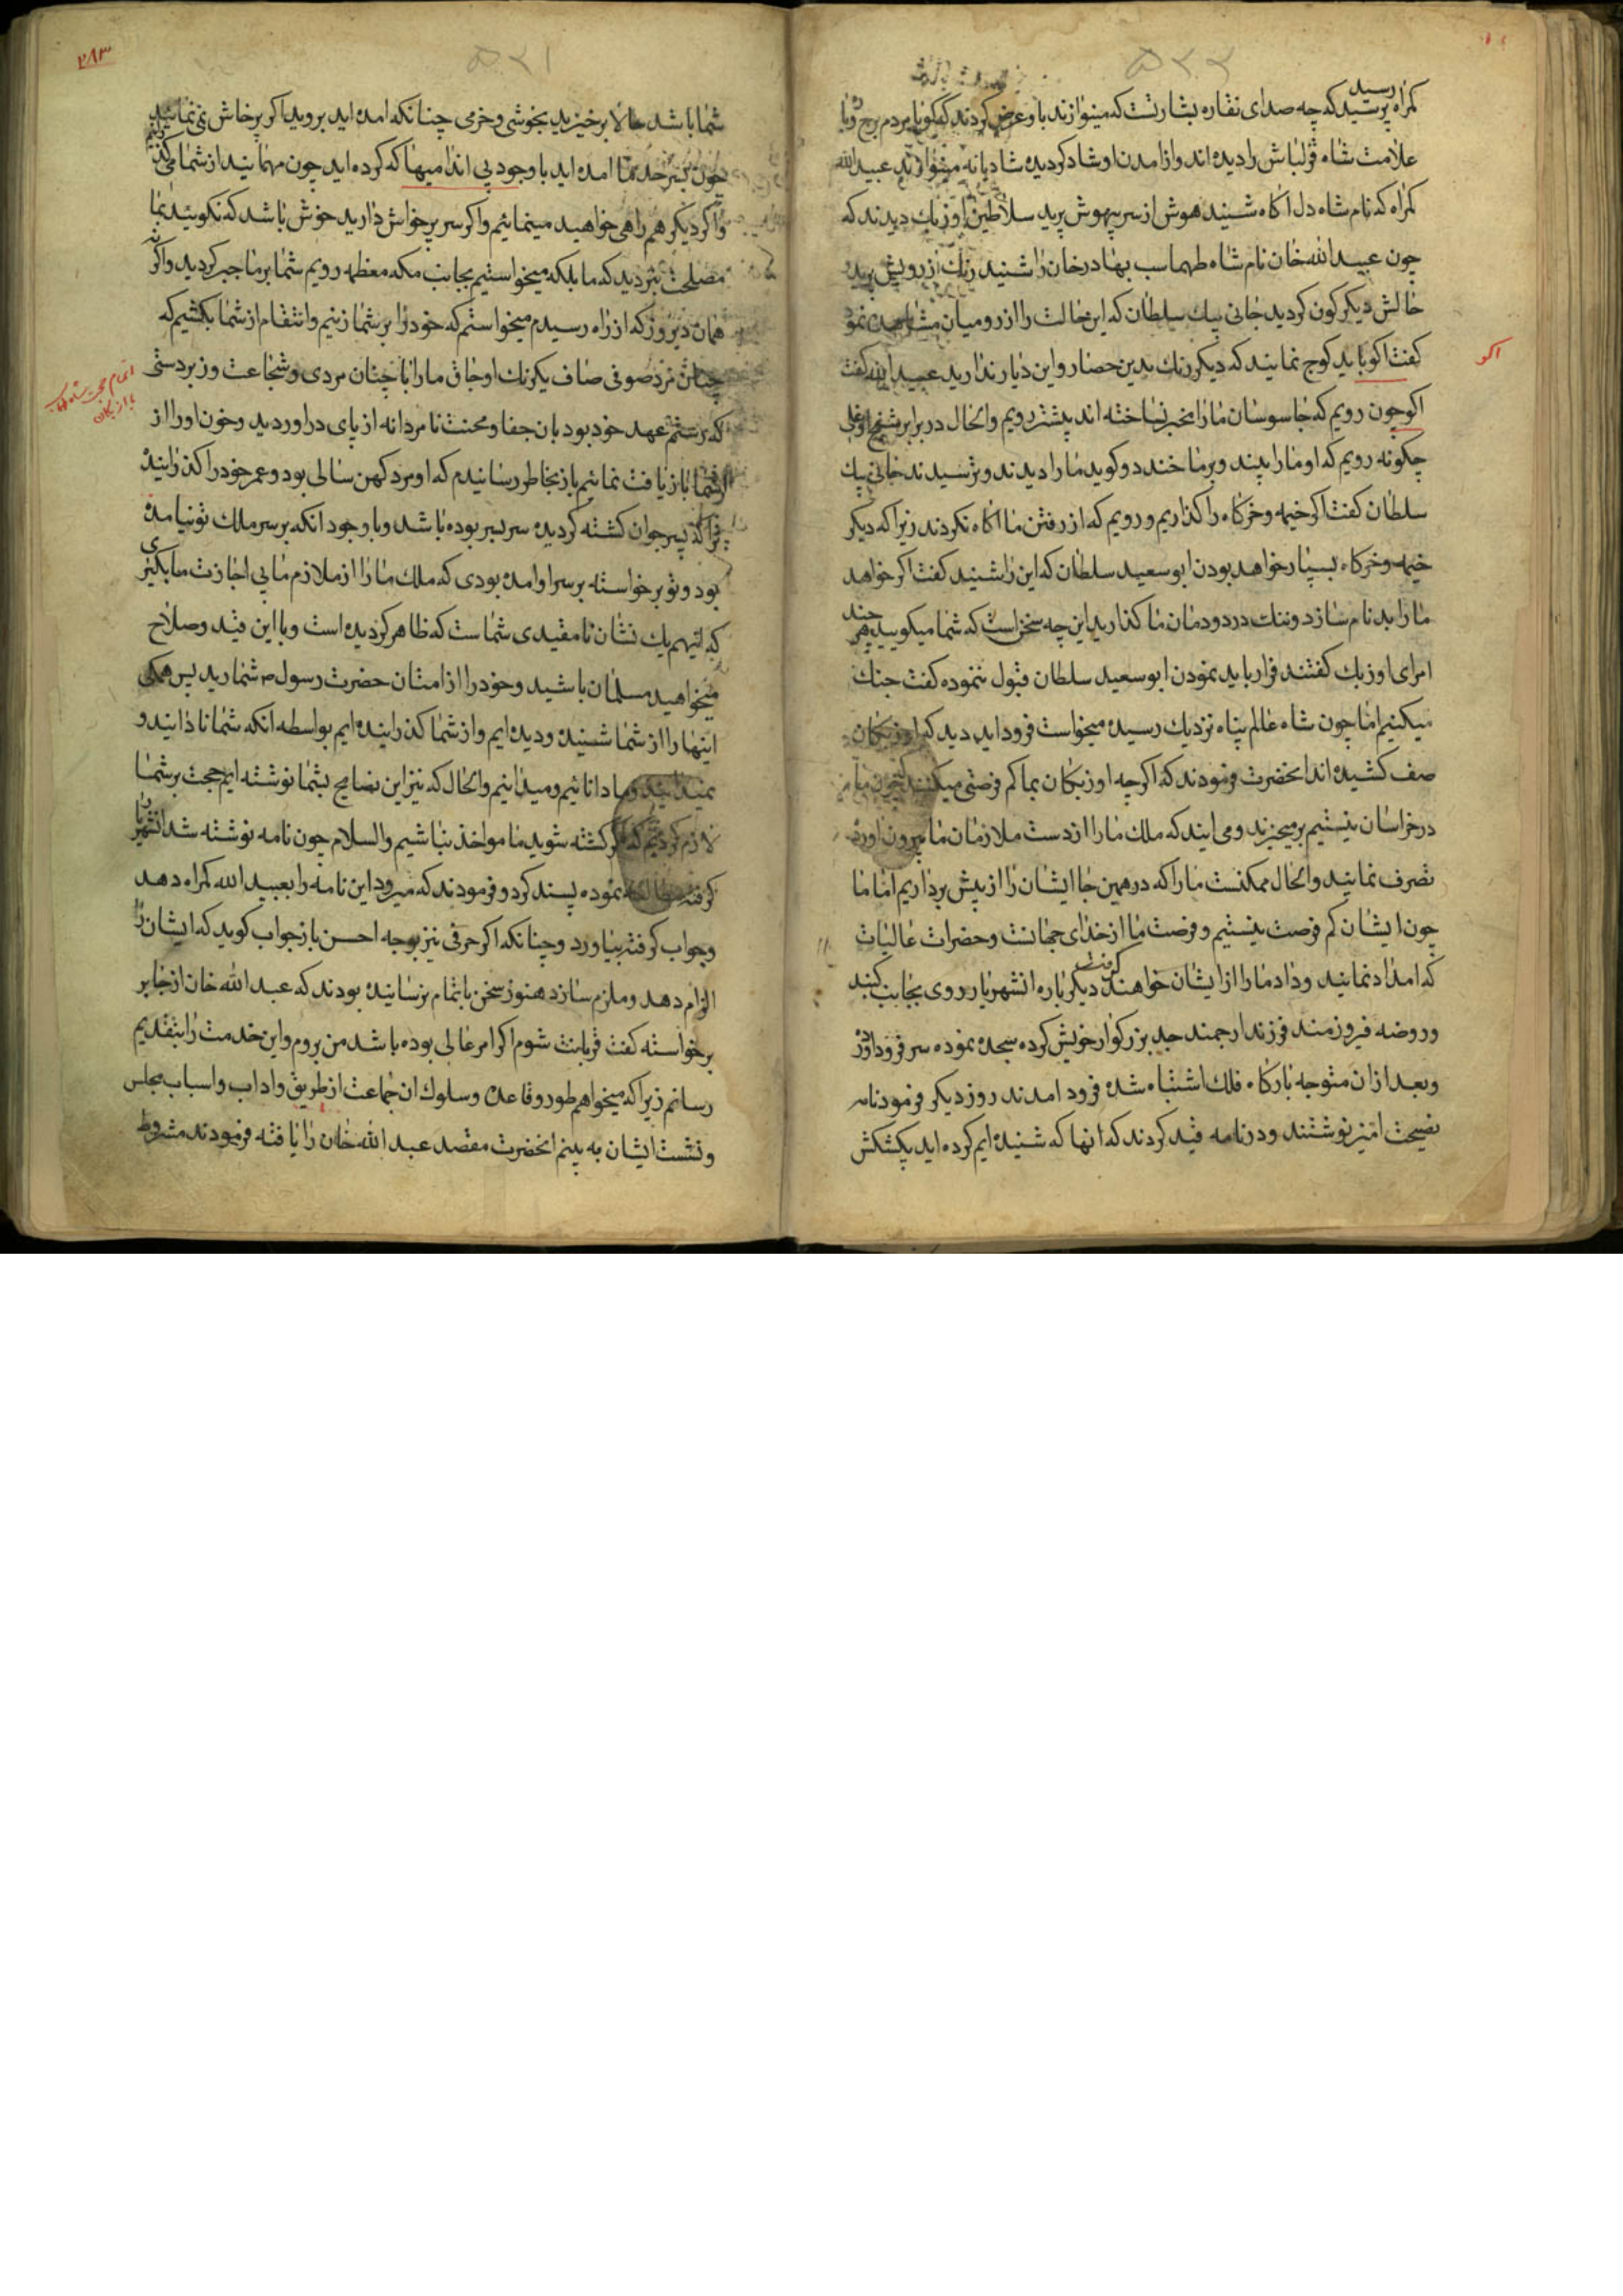 ۵۲۲
کمراه پرسید که چه صدای نقاره بشارتست که مینوازند باو عرض کردند که کویا مردم برج
رسید
علامت شاه قزلباش را دیده اند و از امدن او شاد کردیده شادیانه مینوازند عبید الله
کمراه که نام شاه دل اکاه شنید هوش از سر بیهوش پرید سلاطین اوزبك دیدند که
چون عبید الله خان نام شاه طهماسب بهادر خان را شنید رنك از رویش پرید
حالش دیکرکون کردید جانی بیك سلطان که این حالت را از رو میان مشاهده نمود
کفت اکو باید کوج نمایند که دیکر رنك بدین حصار و این دیار ندارید عبید الله کفت
اکو
اکو چون رویم که جاسوسان ما را مخبر نساخته اند پیشتر رویم والحال در برابر
چکونه رویم که او ما را بیند و بر ما خندد و کوید ما را دیدند و ترسیدند جانی بیك
سلطان کفت اکر خیمه و خرکاه را کذاریم و رویم که از رفتن ما اکاه نکردند زیرا که دیکر
خیمه و خرکاه بسیار خواهد بودن ابو سعید سلطان که این را شنید کفت اکر خواهد
ما را بد نام سازد و ننك در دودمان ما کذارید این چه سخن است که شما میکویید هر چند
امرای اوزبك کفتند فرار باید نمودن ابو سعید سلطان قبول ننموده کفت جنك
میکنیم اما چون شاه عالم پناه نزدیك رسیده میخواست فرود اید دید که اوزبکان
صف کشیده اند انحضرت فرمودند که اکرچه اوزبکان بما کم فرصتی میکنند که چون ما
در خراسان نیستیم برمیخیزند و می ایند که ملك ما را از دست ملازمان ما بیرون اورده
تصرف نمایند والحال ممکنست ما را که در همین جا ایشان را از پیش برداریم اما ما
چون ایشان کم فرصت نیستیم و فرصت ما از خدای جهانست و حضرات عالیات
که امداد نمایند و داد ما را از ایشان خواهند کرفت دیکر باره انشهریار روی بجانب کنبد
و روضه فیروزمند فرزند ارجمند جد بزرکوار خویش کرده سجده نموده سر فرود اورد
و بعد از ان متوجه بارکاه فلك اشتباه شده فرود امدند روز دیکر فرمود نامه
نصیحت امیز نوشتند و در نامه قید کردند که انها که شنیده ایم کرده اید پیشکش
۲۸۳
۵۲۱
شما باشد حالا برخیزید بخوشی و خرمی چنانکه امده اید بروید اکر پرخاش نمی نمایید
چون بسرحد ما امده اید با وجود بی اندامیها که کرده اید چون مهمانید از شما میکذریم
و اکر دیکر همراهی خواهید مینمائیم و اکر سر پرخاش دارید خوش باشد که نکویید بما
مصلحت نبردید که ما بلکه میخواستیم بجانب مکه معظمه رویم شما بر ما جبر کردید و اکر نه
همان دیروز که از راه رسیدم میخواستم که خود را بر شما زنیم و انتقام از شما بکشیم که
چنان مرد صوفی صاف یکرنك اوجاق ما را با چنان مردی و شجاعت و زبردستی
اتمام حجت شاه طهماسب با ازبکان
که رستم عهد خود بود بان جفا و محنت نامردانه از پای دراوردید و خون او را از
شما بازیافت نمائیم باز بخاطر رسانیدم که او مرد کهن سالی بود و عمر خود را کذرانیده
ترا که پسر جوان کشته کردیده سر بسر بوده باشد و با وجود انکه بر سر ملك تو نیامده
بود و تو برخواسته بر سر او امده بودی که ملك ما را از ملازم ما بی اجازت ما بکیری
که اینهم یك نشان نامقیدی شماست که ظاهر کردیده است و با این قید و صلاح
میخواهید مسلمان باشید و خود را از امتان حضرت رسول ص شمارید پس همکی
اینها را از شما شنیده و دیده ایم و از شما کذرانیده ایم بواسطه انکه شما نادانید و
نمیدانید و ما دانائیم و میدانیم والحال که نیز این نصایح بشما نوشته ایم حجت بر شما
لازم کردیم که اکر کشته شوید ما مواخذ نباشیم والسلام چون نامه نوشته شد انشهریار
کرفته مطالعه نموده پسند کرد و فرمودند که میرود این نامه را بعبید الله کمراه دهد
و جواب کرفته بیاورد و چنانکه اکر حرفی نیز بوجه احسن باز جواب کوید که ایشان را
الزام دهد و ملزم سازد هنوز سخن باتمام نرسانیده بودند که عبد الله خان از جا بر
برخواسته کفت قربانت شوم اکر امر عالی بوده باشد من بروم و این خدمت را بتقدیم
رسانم زیرا که میخواهم طور و قاعده و سلوك ان جماعت از طریق و اداب و اسباب مجلس
و نشست ایشان به بینم انحضرت مقصد عبد الله خان را یافته فرمودند مشروط